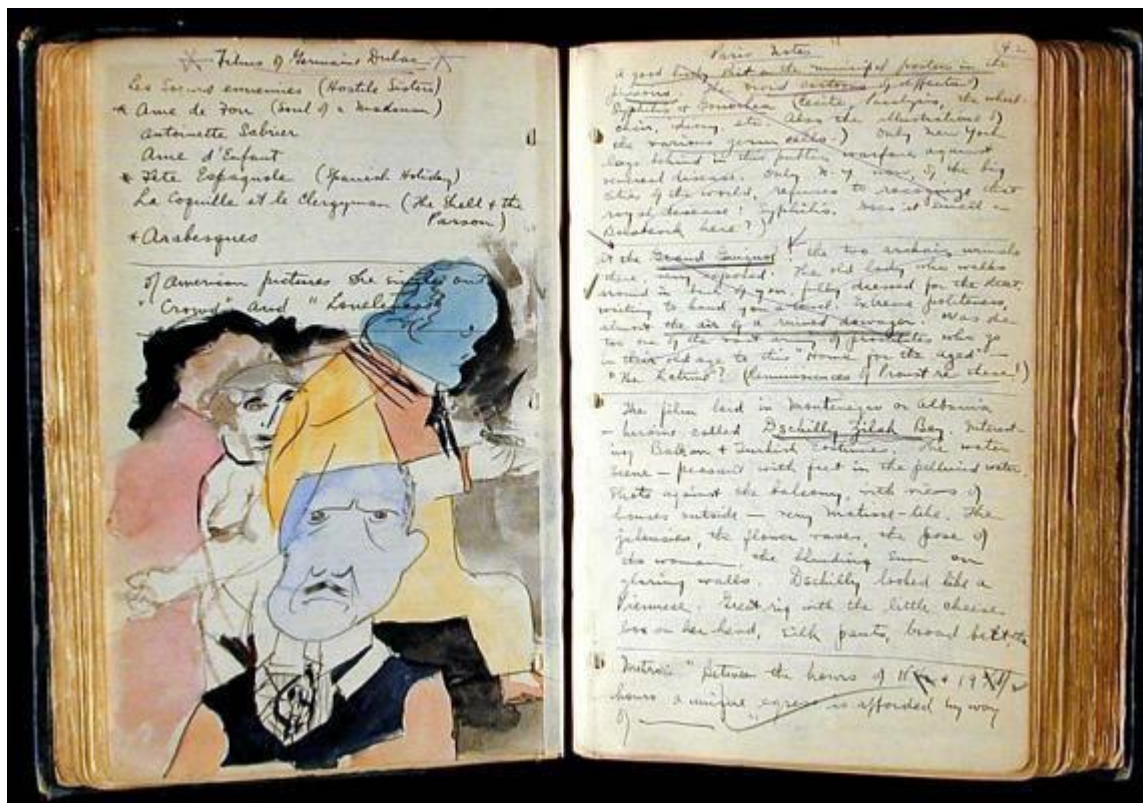 Films of Germaine Dulac
Les Soeurs ennemies (Hostile Sisters)
* Ame de Fou (Soul of a Madman)
Antoinette Sabrier
Ame d'Enfant
* Fête Espagnole (Spanish Holiday)
La Coquille et le Clergyman (The Shell & the
Parson)
* Arabesques
Of American pictures she singles out
"Crowd" and "Lonesome"
Paris Notes 42
A good bit on the municipal posters in the
The cartoons of effects of
Syphilis & Gonorrhea the wheel-
chair, etc. Also the illustrations of
the various germ cells.) Only New York
lags behind in this public warfare against
venereal disease. Only N.Y. now, of the big
cities of the world, refuses to recognize that
royal disease! Syphilis. Does it
here?)
At the Grand Guignol! the two archaic urinals
there, very exposed. The old lady who walks
around in back of you fully dressed for the street,
waiting to hand you a towel. Extreme politeness,
almost the air of a ruined dowager. Was she
too one of the vast army of prostitutes who go
in their old age to this "Home for the aged" —
"The Latrine"? (Reminiscences of Proust re these!)
The film laid in Montenegro or Albania
— heroine called Dschilly Zileh Bey. Interest-
ing Balkan & Turkish costumes. The water
scene — peasant with feet in the water.
Photo against the balcony, with views of
houses outside — very Matisse-like. The
jalousies, the flower vases, the pose of
the woman, the blinding sun on
glaring walls. Dschilly looked like a
Viennese. Great rig with the little cheese
box on her head, silk pants, broad belt etc
"Metro" Between the hours of & 19
hours a unique egress is afforded by way
of